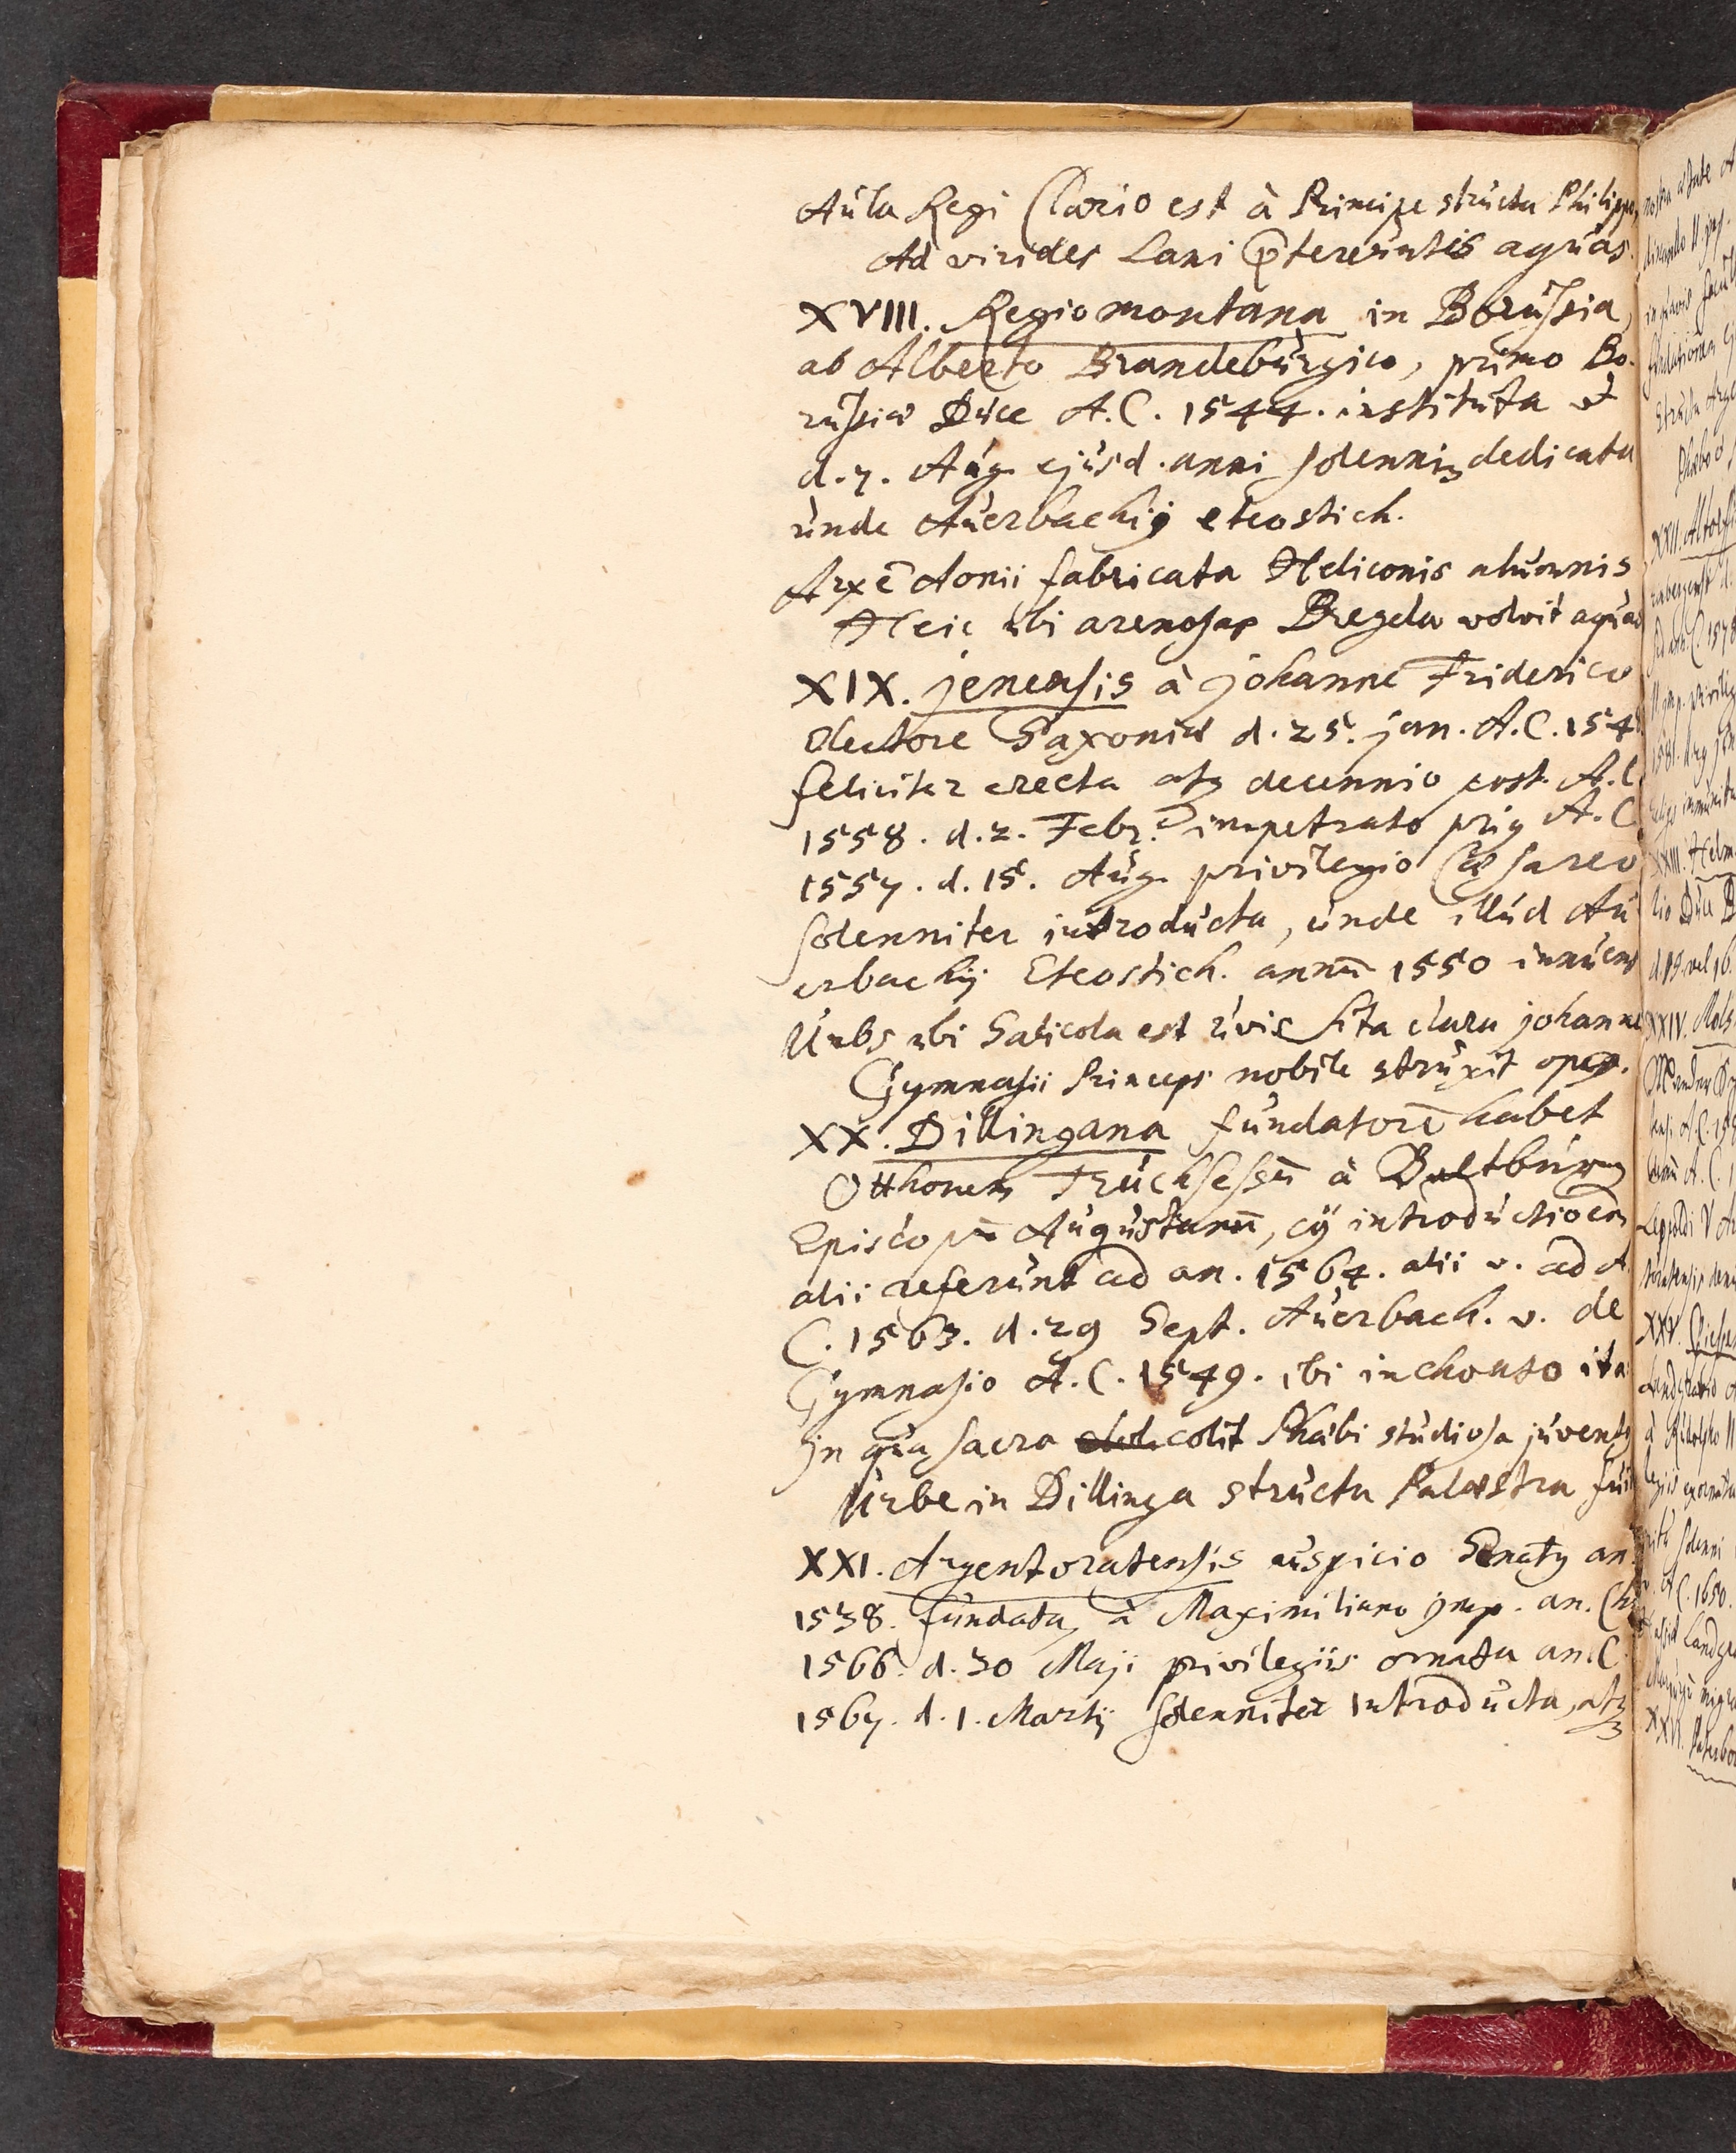 Aula Regi Clario est à Principe structa Philippo,
Ad virides Lani p̄tereuntis aquas.
XVIII. Regiomontana in Borussia,
ab Alberto Brandeburgico, primo Bo-
russiæ Duce A.C. 1544. instituta et
d. 7. Aug. ejusd. anni solenniꝫ dedicata
unde Auerbachij eteostich.
Arx ē Aonii fabricata Heliconis alumnis
Heic ubi arenosas Bregela volvit aquas
XIX. jenensis à johanne Friderico
Electore Saxoniæ d. 25. jan. A.C. 154
feliciter erecta atqꝫ decennio post. A.C.
1558. d. 2. Febr. impetrato priꝰ A.C.
1557. d. 15. Aug. privilegio Cæsareo
solenniter introducta, unde illud Au-
erbachij Eteostich. annū 1550 innuens
Urbs ubi Salicola est rivis sita clara johannes
Gymnasii Princeps nobile struxit opꝰ.
XX. Dillingana fundatorē habet
Otthonem Truchsessū à Baltburg
Episcopū Augustanū, cꝰ introductionem
alii referunt ad an. 1564. alii v. ad A.
C. 1563. d. 29 Sept. Auerbach. v. de
Gymnasio A.C. 1549. ibi inchoato ita:
jn qua sacra colit Phæbi studiosa juventꝰ
Urbe in Dillinga structa Palæstra fuit
XXI. Argentoratensis auspicio Senatꝰ an.
1538. fundata, à Maximiliano jmp. an. Ch
1566. d. 30 Maji privilegiis ornata an. C.
1567. d. 1. Martij solenniter introducta, atqꝫ